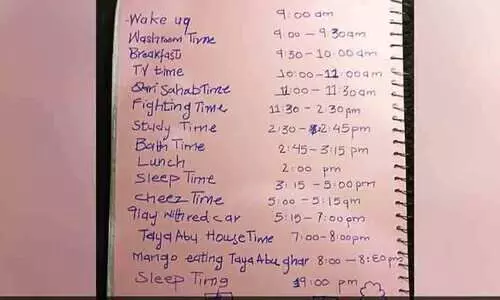 Wake uq 9:00 am
Washroom Time 9:00 - 9:30am
Breakfast 9:30 - 10:00am
TV time 10:00 - 11:00am
Qari Sahab Time 11:00 - 11:30am
Fighting Time 11:30 - 2:30 pm
Study Time 2:30 - 2:45pm
Bath Time 2:45 - 3:15 pm
Lunch 2:00 pm
Sleep Time 3:15 - 5:00pm
cheez Time 5:00 - 5:15qm
Play with red car 5:15 - 7:00pm
Taya Abu House Time 7:00 - 8:00pm
Mango eating Taya Abu ghar 8:00 - 8:50pm
Sleep Time 9:00 pm